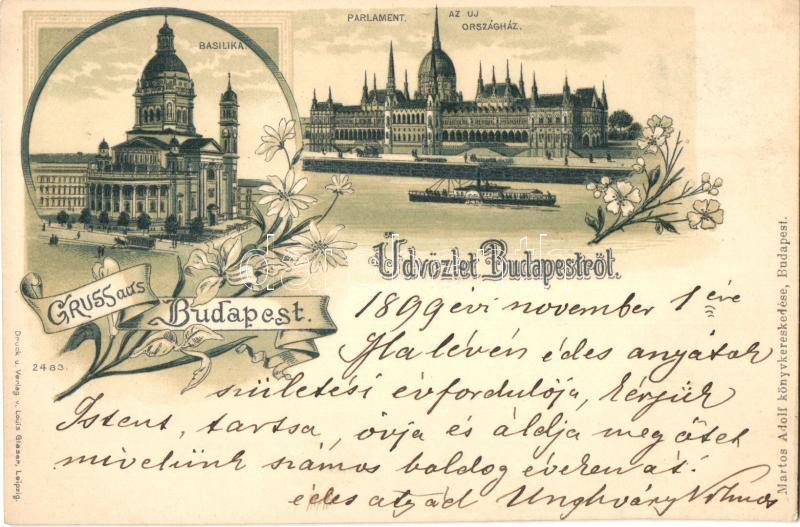 BASILIKA.
PARLAMENT. AZ UJ
ORSZÁGHÁZ.
Üdvözlet Budapestről.
GRUSS aus
Budapest.
2483.
1899 évi november 1 ére
Ma lévén édes anyátok
születési évfordulója, kérjük
Istent, tartsa, óvja és áldja meg őtet
mivelünk számos boldog éveken át.
édes atyád Unghváry Vilmos
Druck u. Verlag v. Louis Glaser, Leipzig.
Martos Adolf könyvkereskedése, Budapest.
darabanth.com